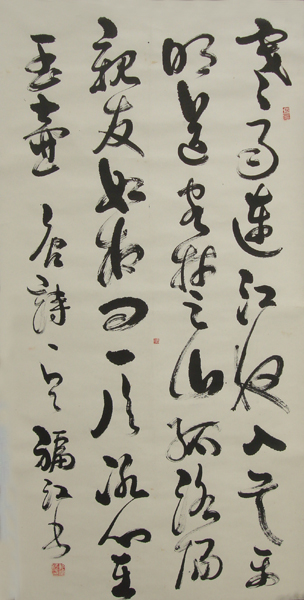 寒雨連江夜入吴平
明送客楚山孤洛陽
親友如相问一片冰心在
玉壶 唐詩一首 江书